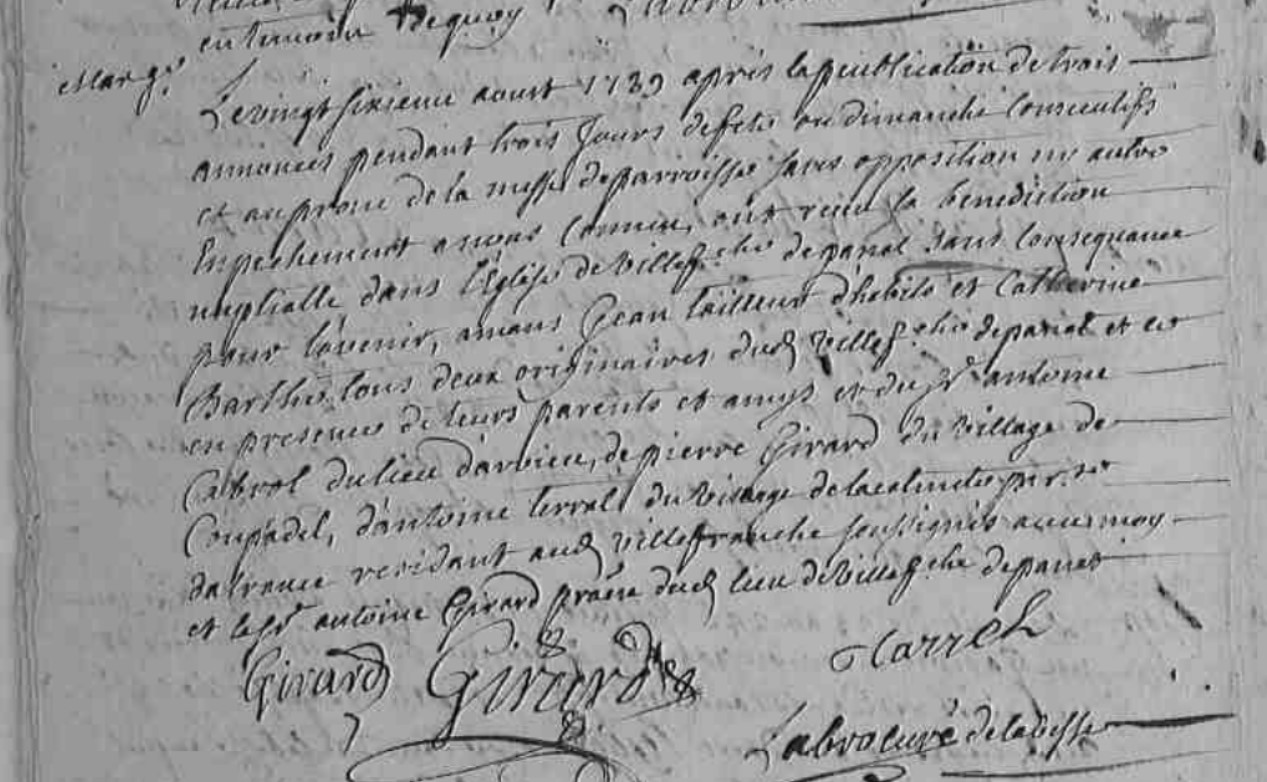 en temoin dequoy
Mar.ge
Le vingt sixieme aoust 1739 apres la publication de trois
annonces pendant trois Jours de feste ou dimanche consecutifs
et au prone de la messe de parroisse sans opposition ni autre
Enpechement a nous connu, ont reçu la benediction
nuptialle dans l'Eglise de villef.che de panat sans consequance
pour l'avenir, Jean tailleur d'habits et Catherine
Barthe tous deux originaires dud villef.che de panat et ce
en presence de leurs parents et amys et du Sr antoine
Cabrol du lieu d'arvieu, de pierre Girard du village de
Coupadel, d'antoine terral du village de
resident aud villefranche soussignés avec moy
et le Sr antoine Girard dud lieu de villef.che de panat
Girard Girard Carrel
Labro curé de labesse